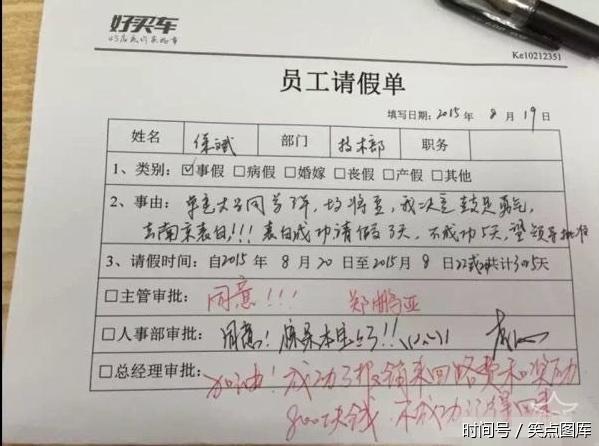 好买车
Ke10212351
员工请假单
填写日期:2015年8月19日
姓名 徐斌 部门 技术部 职务
1、类别:☑事假 □病假 □婚嫁 □丧假 □产假 □其他
2、事由:单恋大学同学3年,我决定鼓足勇气,
去南京表白!!!表白成功请假3天,不成功5天,望领导批准
3、请假时间:自2015年8月20日至2015年8日22或24共计3or5天
□主管审批:同意!!! 郑鹏亚
□人事部审批:同意!
□总经理审批:加油!成功了报销来回路费和奖励
800块钱
时间号/笑点图库